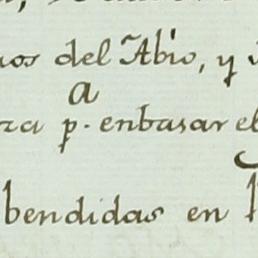 del Abío, y
a
p. enbasar el
bendidas en